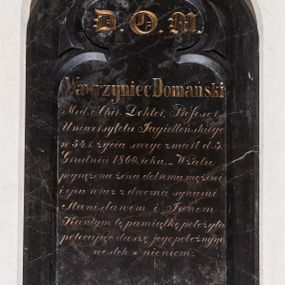 D. O. M.
Wawrzyniec Domański
Med. i Chir. Doktor, Profesor
Uniwersytetu Jagiellońskiego
w 54 r. życia swego zmarł d. 5
Grudnia 1860. roku. W żalu
pogrążona żona dobremu mężowi
i ojcu wraz z dwoma synami
Stanisławem i Janem
Kantym tę pamiątkę położyła
polecając duszę jego pobożnym
westchnieniom.